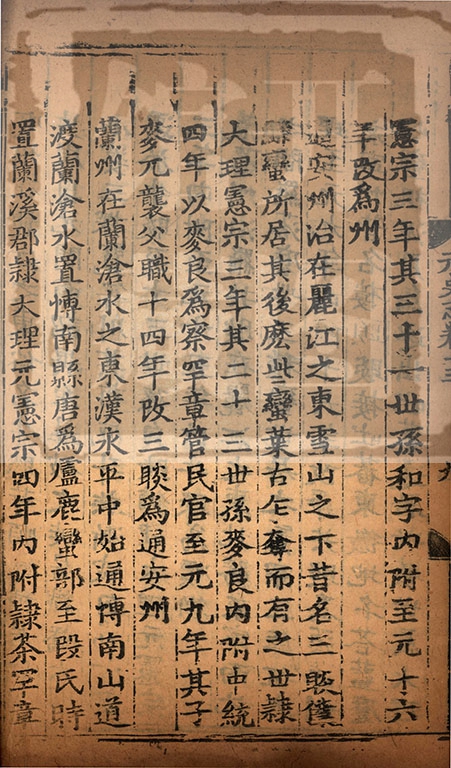 憲宗三年其三十一世孫和字內附至元十六
年改為州
通安州治在麗江之東雪山之下昔名三賧僕
蠻所居其後麽些蠻葉古乍奪而有之世隷
大理憲宗三年其二十三世孫麥良內附中統
四年以麥良為察罕章管民官至元九年其子
麥兀襲父職十四年改三賧為通安州
蘭州在蘭滄水之東漢永平中始通博南山道
渡蘭滄水置博南縣唐為盧鹿蠻部至段氏時
置蘭溪郡隷大理元憲宗四年內附隷茶罕章